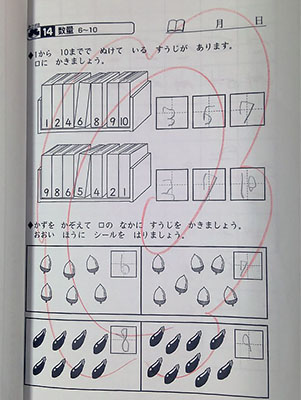 14 数量 6〜10 月 日
◆1から 10までで ぬけて いる すうじが あります。
□に かきましょう。
1 2 4 6 8 9 10
3 5 7
9 8 6 5 4 2 1
3 7 10
◆かずを かぞえて □の なかに すうじを かきましょう。
おおい ほうに シールを はりましょう。
6
8 9